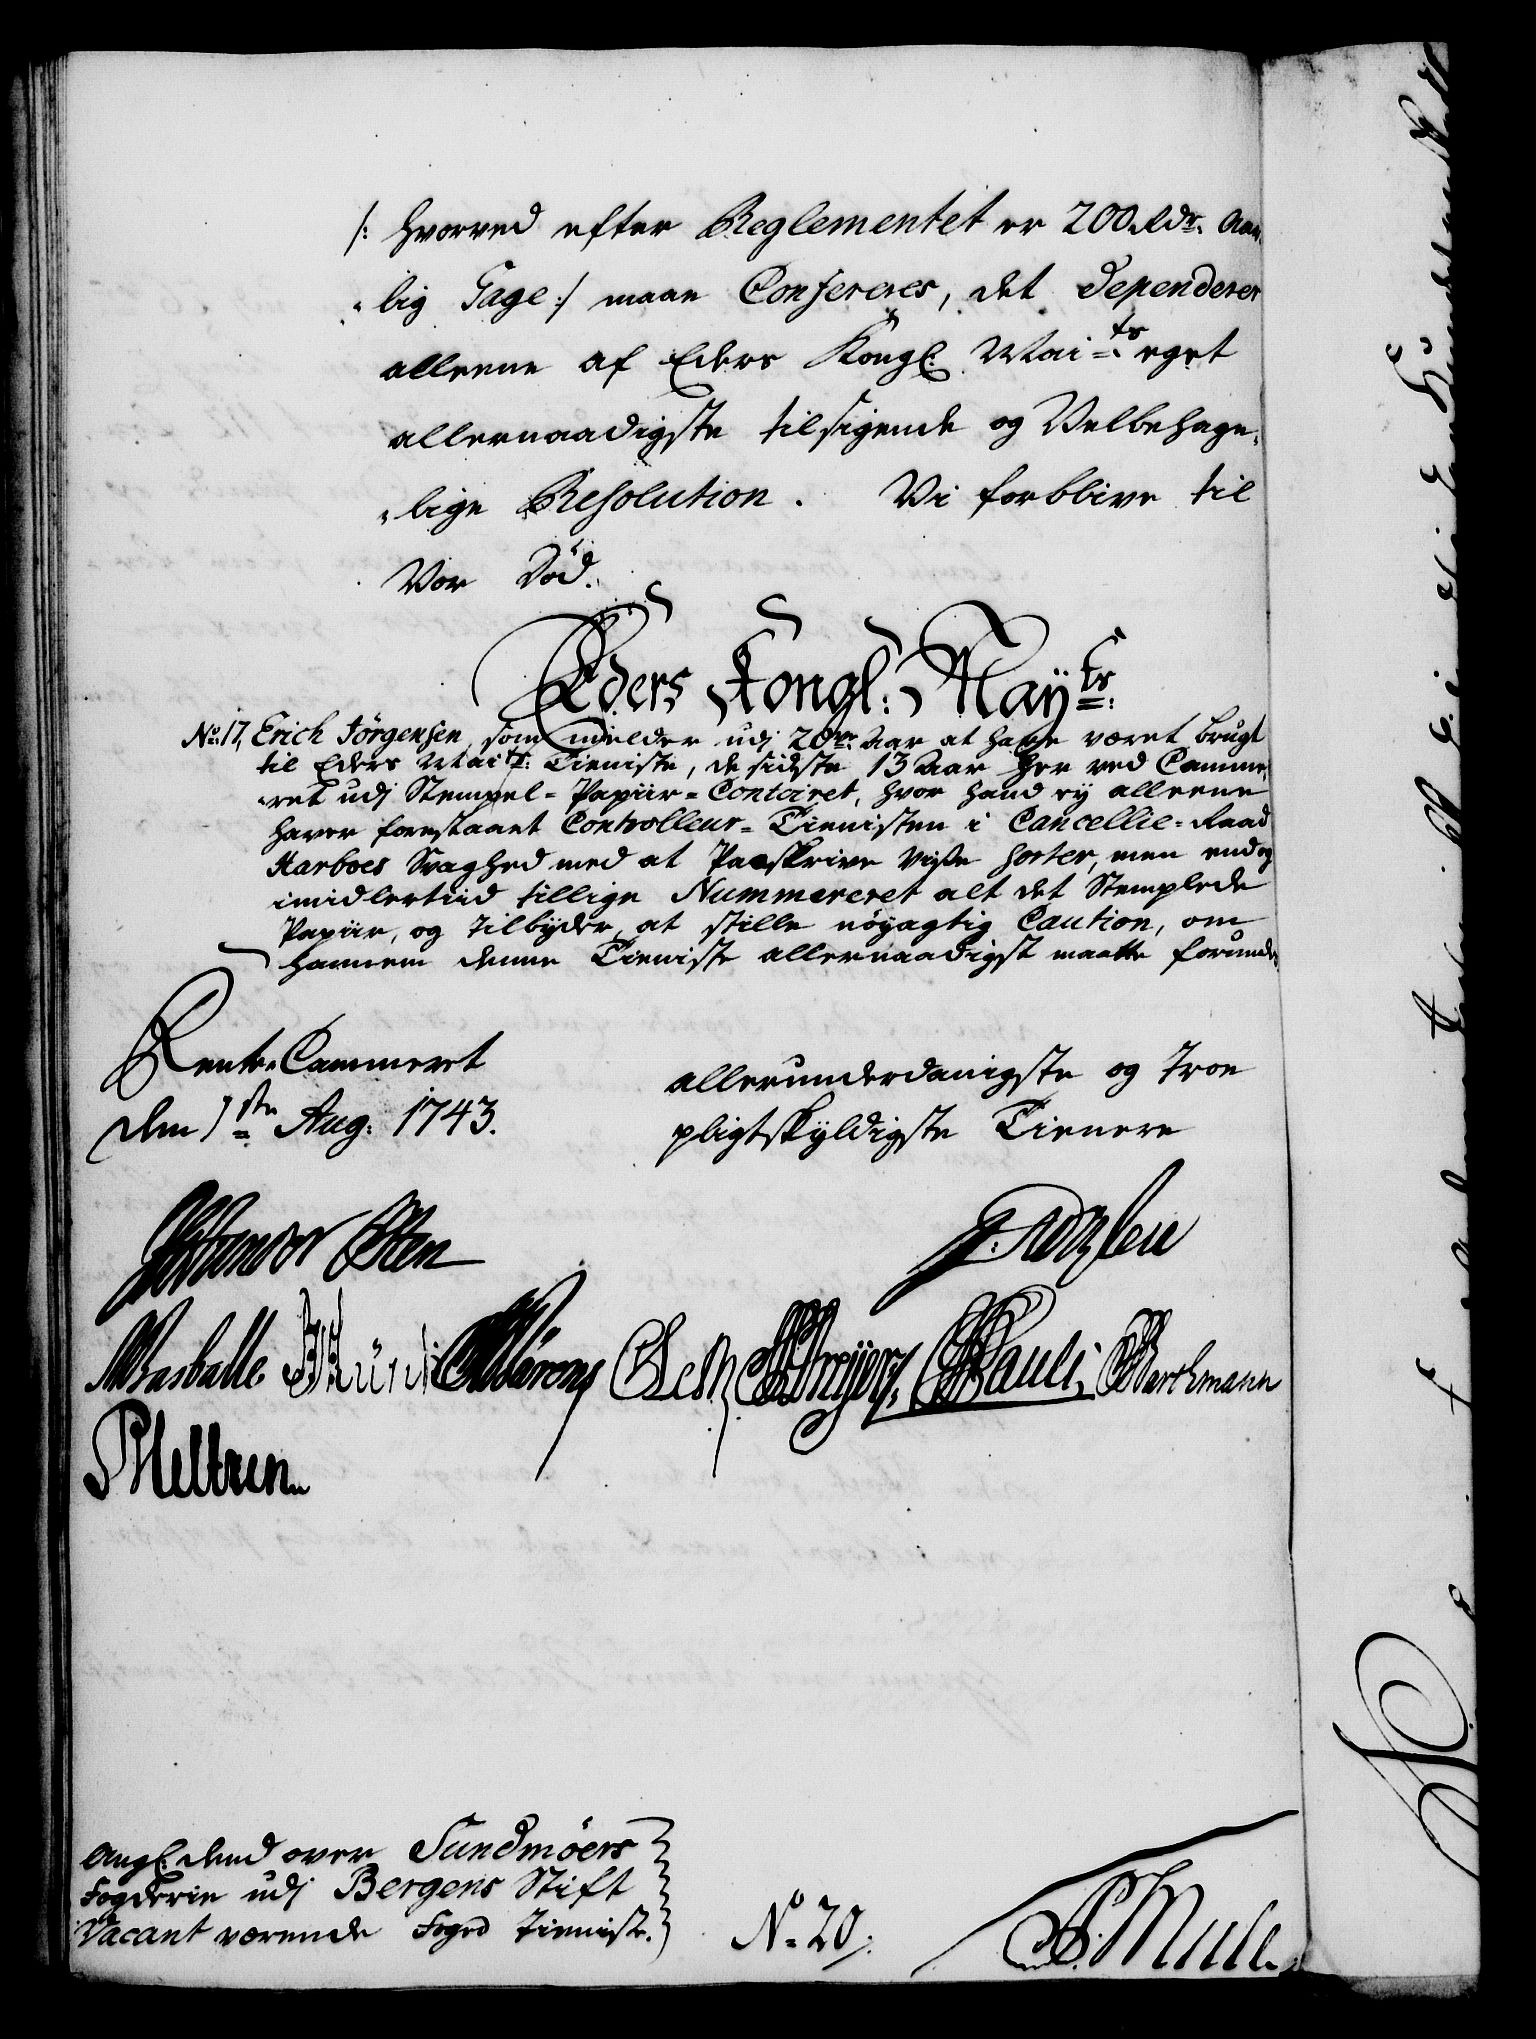 /: hvorved efter Reglementet er 200 Rdr. Aar,
,,lig Gage :/ maae Confereres, det dependerer
alleene af Eders Kongl: Mai=ts eget
allernaadigste tilsigende og Velbehage,
,,lige Resolution. Vi forblive til
Vor Död.
Eders Kongl: Maÿts:
No: 17, Erich Jörgensen, som melder udj 20ve Aar at have været brugt
til Eders Maits: Tieniste, de sidste 13 Aar her ved Camme,
,,ret udj Stempel-Papiir-Contoiret, hvor hand ey alleene
haver forestaaet Controlleur-Tienisten i Cancellie-Raad
Harboes Svaghed med at Paaskrive visse sorter, men endog
imidlertiid tillige Nummereret alt det Stemplede
Papiir, og tilbÿder, at stille nöÿagtig Caution, om
hannem denne Tieniste allernaadigst maatte forundes
Rente-Cammeret
den 1ste Aug: 1743.
allerunderdanigste og Troe
pligtskÿldigste Tienere
von Osten
Basballe
Pauli
Barthmann
PHeltzen
Angl: dend over Sundmöers
Fogderie udj Bergens Stift
Vacant værende Foged Tieniste.
No= 20.
Mule